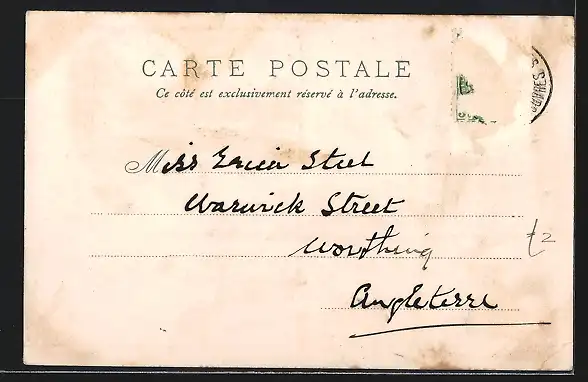 CARTE POSTALE
Ce côté est exclusivement réservé à l'adresse.
Miss Steel
Warwick Street
Worthing
Angleterre
£2